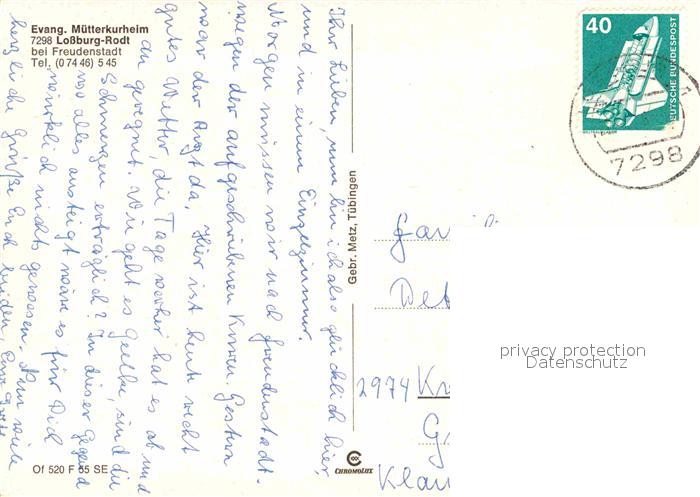 Evang. Mütterkurheim
7298 Loßburg-Rodt
bei Freudenstadt
Tel. (0 74 46) 5 45
Ihr Lieben, nun bin ich also glücklich hier,
und in einem Einzelzimmer.
Morgen müssen wir nach Freudenstadt.
wegen der aufgeschriebenen Kuren. Gestern
war der Arzt da. Hier ist heute recht
gutes Wetter, die Tage vorher hat es ab und
an geregnet. Wie geht es, sind die
Schmerzen erträglich? In dieser Gegend
wo alles ansteigt wäre es für Dich
wirklich nicht gewesen. Nun viele
herzliche Grüße Euch beiden, Eure
Of 520 F 55 SE
Gebr. Metz, Tübingen
CHROMOLUX
40
DEUTSCHE BUNDESPOST
7298
Fam
Det
2974 Kr
G
Klau
privacy protection
Datenschutz